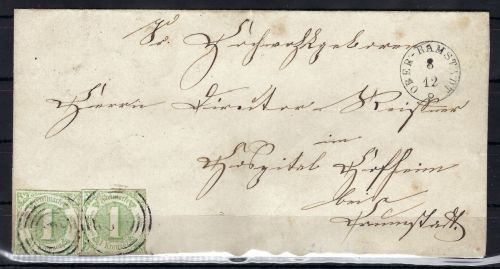 Sr. Hochwohlgeboren
OBER-RAMSTADT
8
12
Herrn Director Reissner
im
Hospital Hofheim
bei
Darmstadt.
1 1